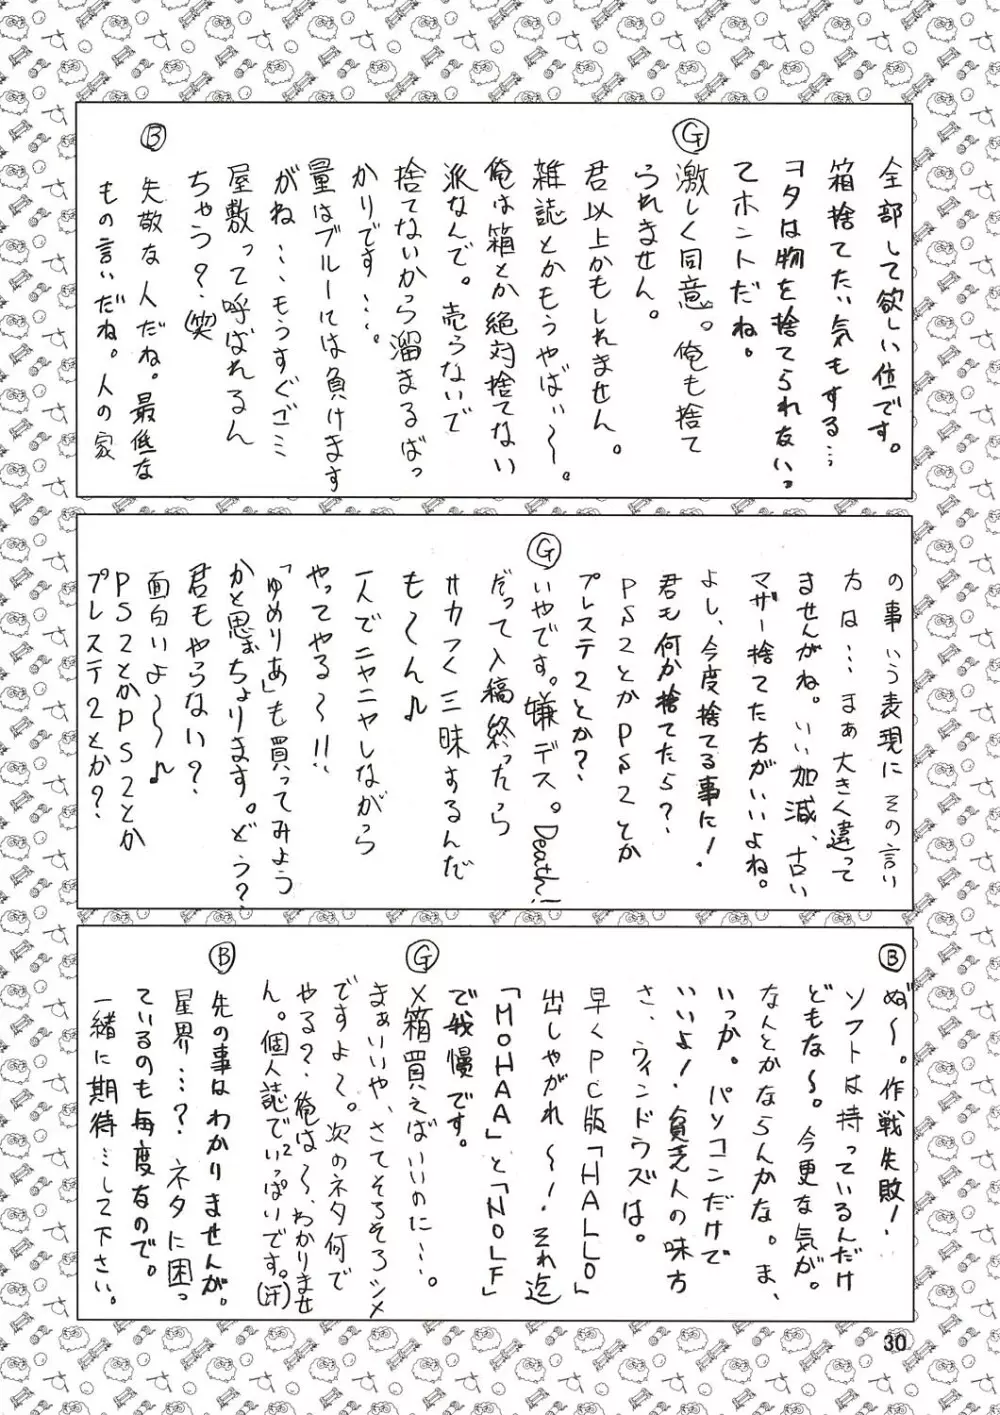 全部して欲しい位です。
箱捨てたい気もする…
ヲタは物を捨てられないっ
てホントだね。
Ⓖ 激しく同意。俺も捨て
られません。
君以上かもしれません。
雑誌とかもうやばぃ～。
俺は箱とか絶対捨てない
派なんで。売らないで
捨てないから溜まるばっ
かりです…。
量はブルーには負けます
がね…もうすぐゴミ
屋敷って呼ばれるん
ちゃう？(笑)
Ⓑ 失敬な人だね。最低な
もの言いだね。人の家
の事いう表現にその言い
方は…まぁ大きく違って
ませんがね。いい加減、古い
マザー捨てた方がいいよね。
よし、今度捨てる事に！
君も何か捨てたら？
PS2とかPS2とか
プレステ2とか？
Ⓖ いやです。嫌デス。Death!
だって入稿終ったら
サカつく三昧するんだ
も～ん♪
一人でニヤニヤしながら
やってやる～!!
「ゆめりあ」も買ってみよう
かと思ぉちょります。どう？
君もやらない？
面白いよ～♪
PS2とかPS2とか
プレステ2とか？
Ⓑ ぬ～。作戦失敗！
ソフトは持っているんだけ
どもな～。今更な気が。
なんとかならんかな。ま、
いっか。パソコンだけで
いいよ！貧乏人の味方
さ、ウィンドウズは。
早くPC版「HALLO」
出しやがれ～！それ迄
「MOHAA」と「NOLF」
で我慢です。
Ⓖ ×箱買えばいいのに…。
まぁいいや、さてそろそろシメ
ですよ～。次のネタ何で
やる？俺は～、わかりませ
ん。個人誌でいっぱいです。(汗)
Ⓑ 先の事はわかりませんが。
星界…？ネタに困っ
ているのも毎度なので。
一緒に期待…して下さい。
30